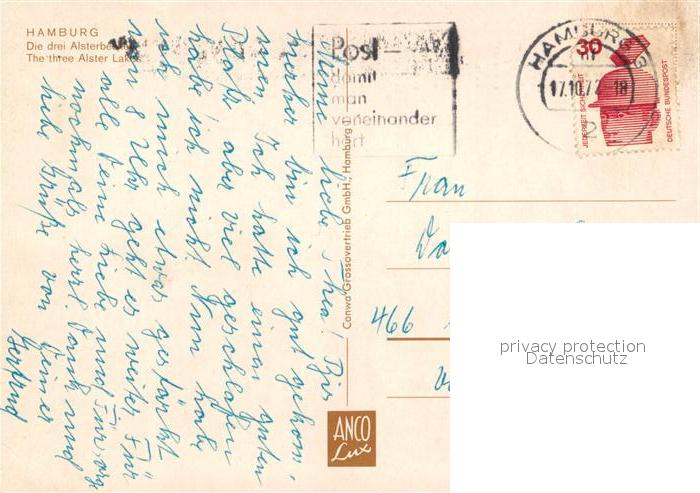 HAMBURG
Die drei Alsterbecken
The three Alster Lakes
Post
damit
man
voneinander
hört
HAMBURG
17.10.72-18
30
JEDERZEIT SICHERHEIT
DEUTSCHE BUNDESPOST
Meine liebe Thea! Bis
hierher bin ich gut gekom-
men. Ich hatte einen guten
Platz, aber viel geschlafen
habe ich nicht. Nun habe
ich mich etwas gestärkt
Uhr geht es weiter. Für
alle Deine Liebe und Fürsorge
nochmals herzl. Dank und
liebe Grüße von Deiner
Gertrud
Conwa Grossovertrieb GmbH., Hamburg
ANCO
Lux
Frau
466
privacy protection
Datenschutz